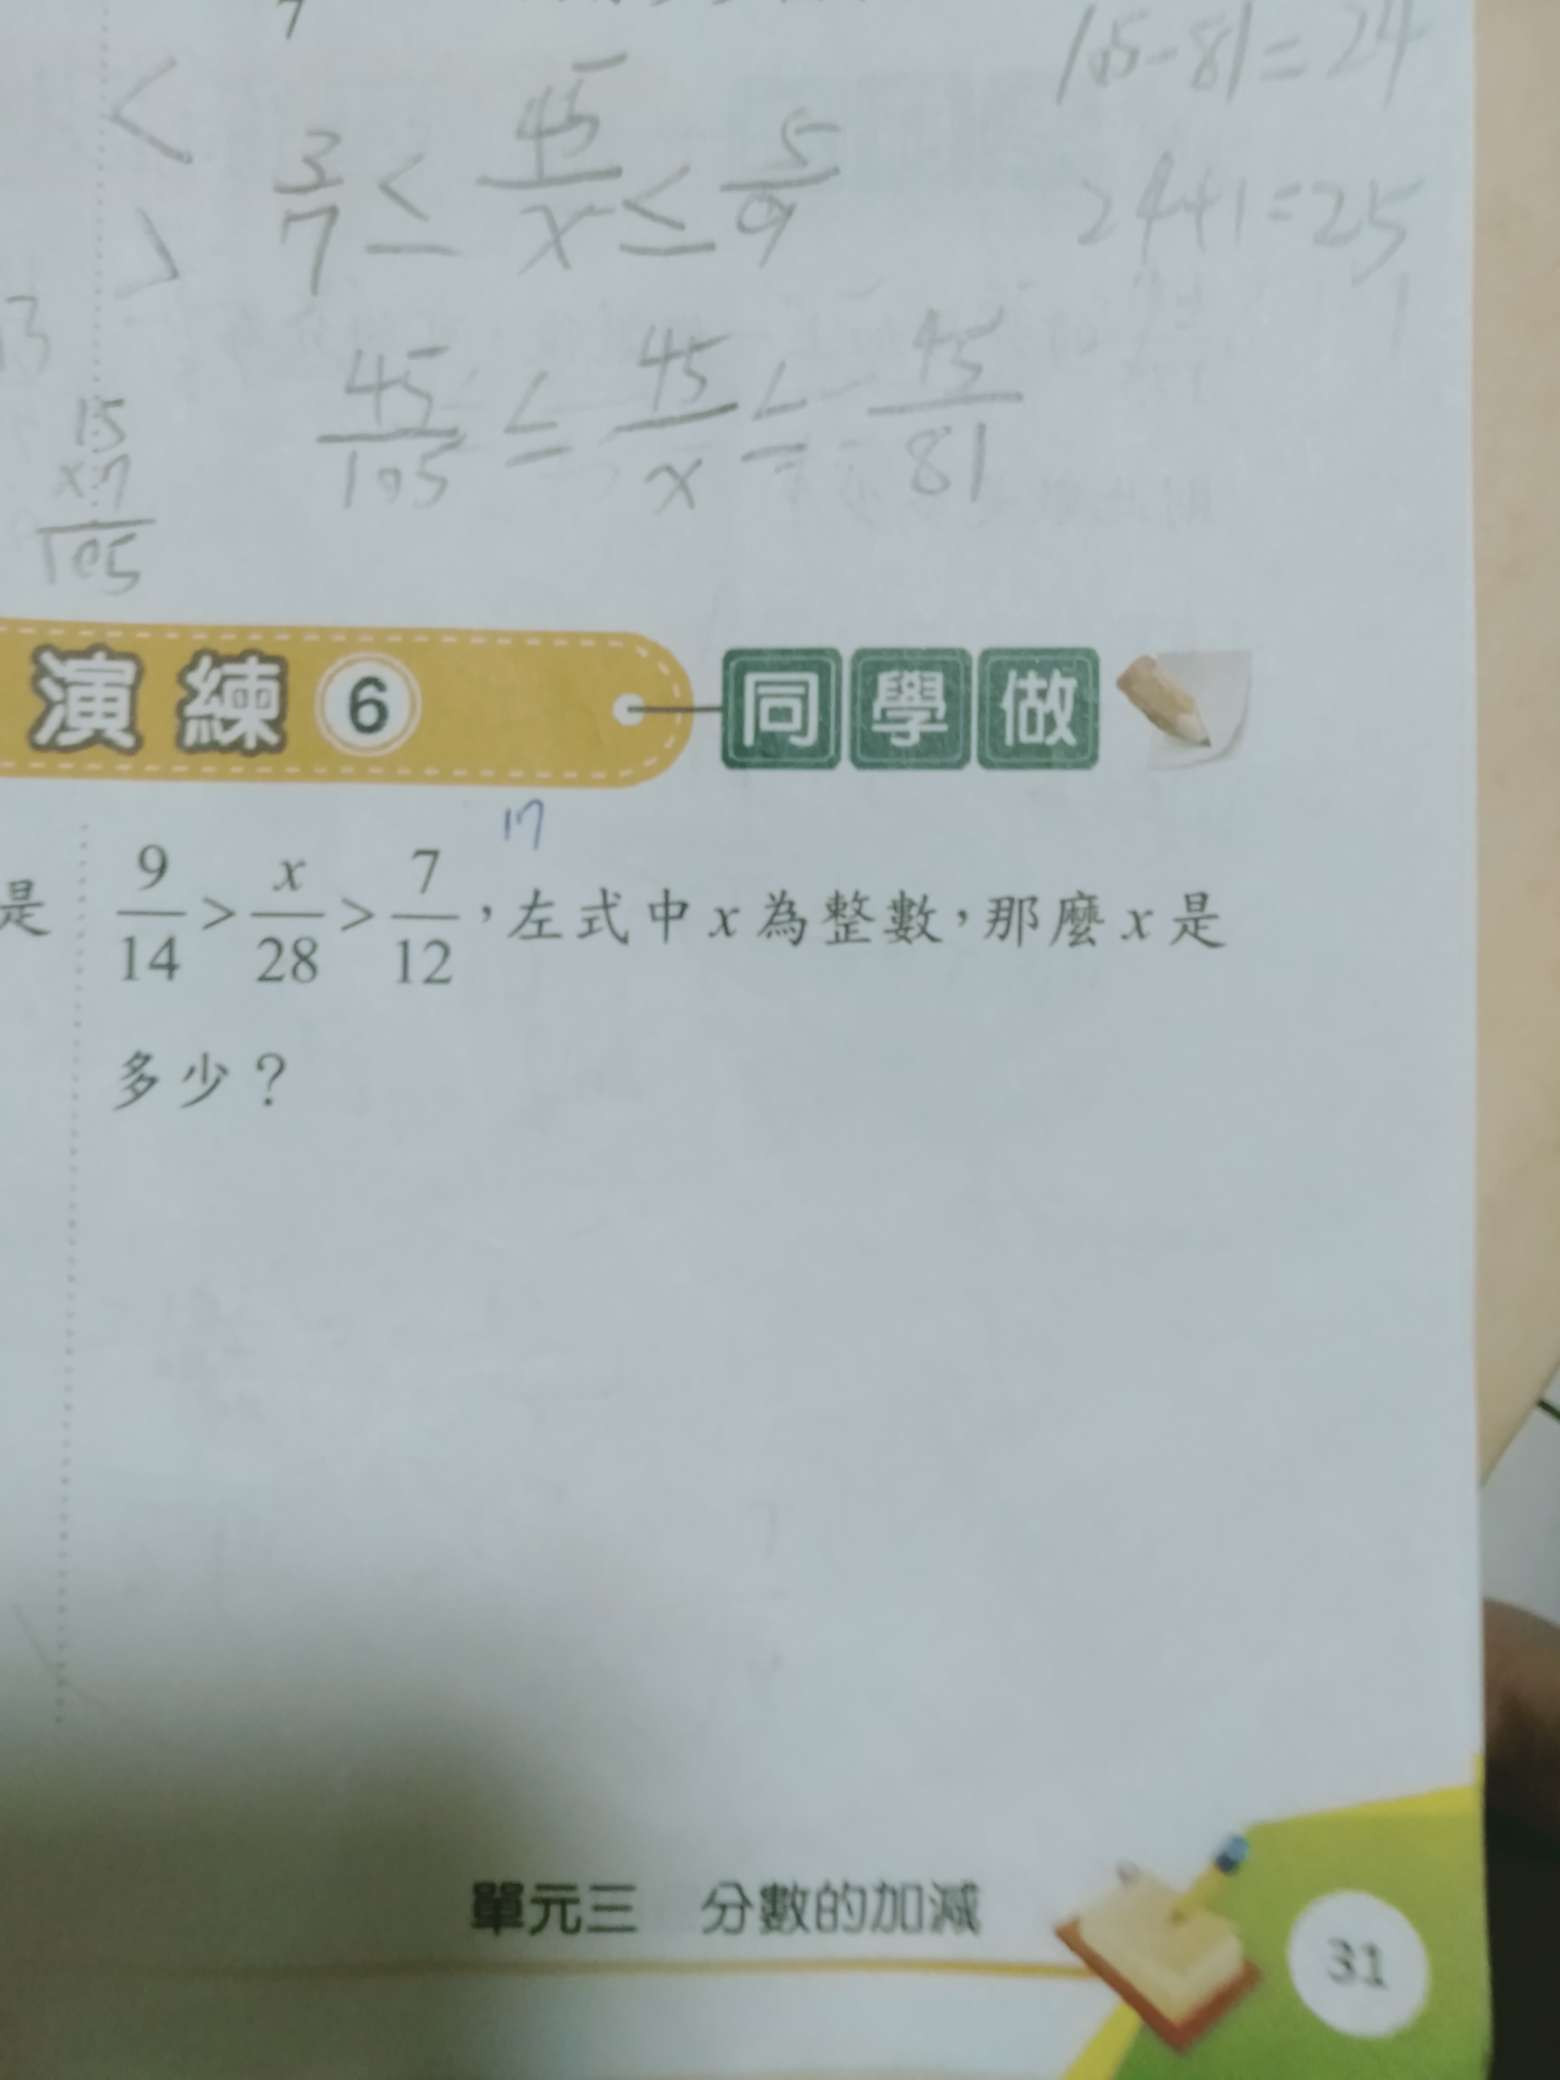 7
105-81=24
<
3/7 ≤ 45/x ≤ 5/9
24+1=25
>
45/105 ≤ 45/x ≤ 45/81
15
x7
105
演練6 同學做
17
是 9/14 > x/28 > 7/12，左式中x為整數，那麼x是
多少？
單元三 分數的加減
31